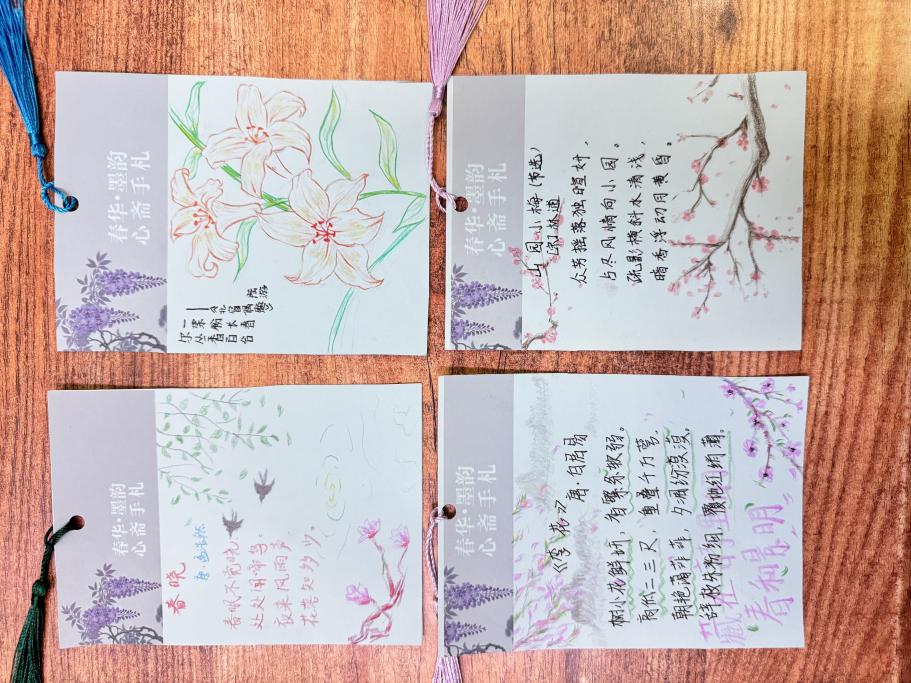 春华·墨韵
心斋手札
陆游
春华·墨韵
心斋手札
山园小梅(节选)
[宋]林逋
众芳摇落独暄妍,
占尽风情向小园。
疏影横斜水清浅,
暗香浮动月黄昏。
春华·墨韵
心斋手札
春晓
唐·孟浩然
春眠不觉晓,
处处闻啼鸟。
夜来风雨声
花落知多少。
春华·墨韵
心斋手札
《李花》
唐·白居易
树小花鲜妍,香繁条软弱。
高低二三尺,重叠千万萼。
朝艳蔼霏霏,夕凋纷漠漠。
辞枝朱粉细,覆地红绡薄。
藏在
春和景明